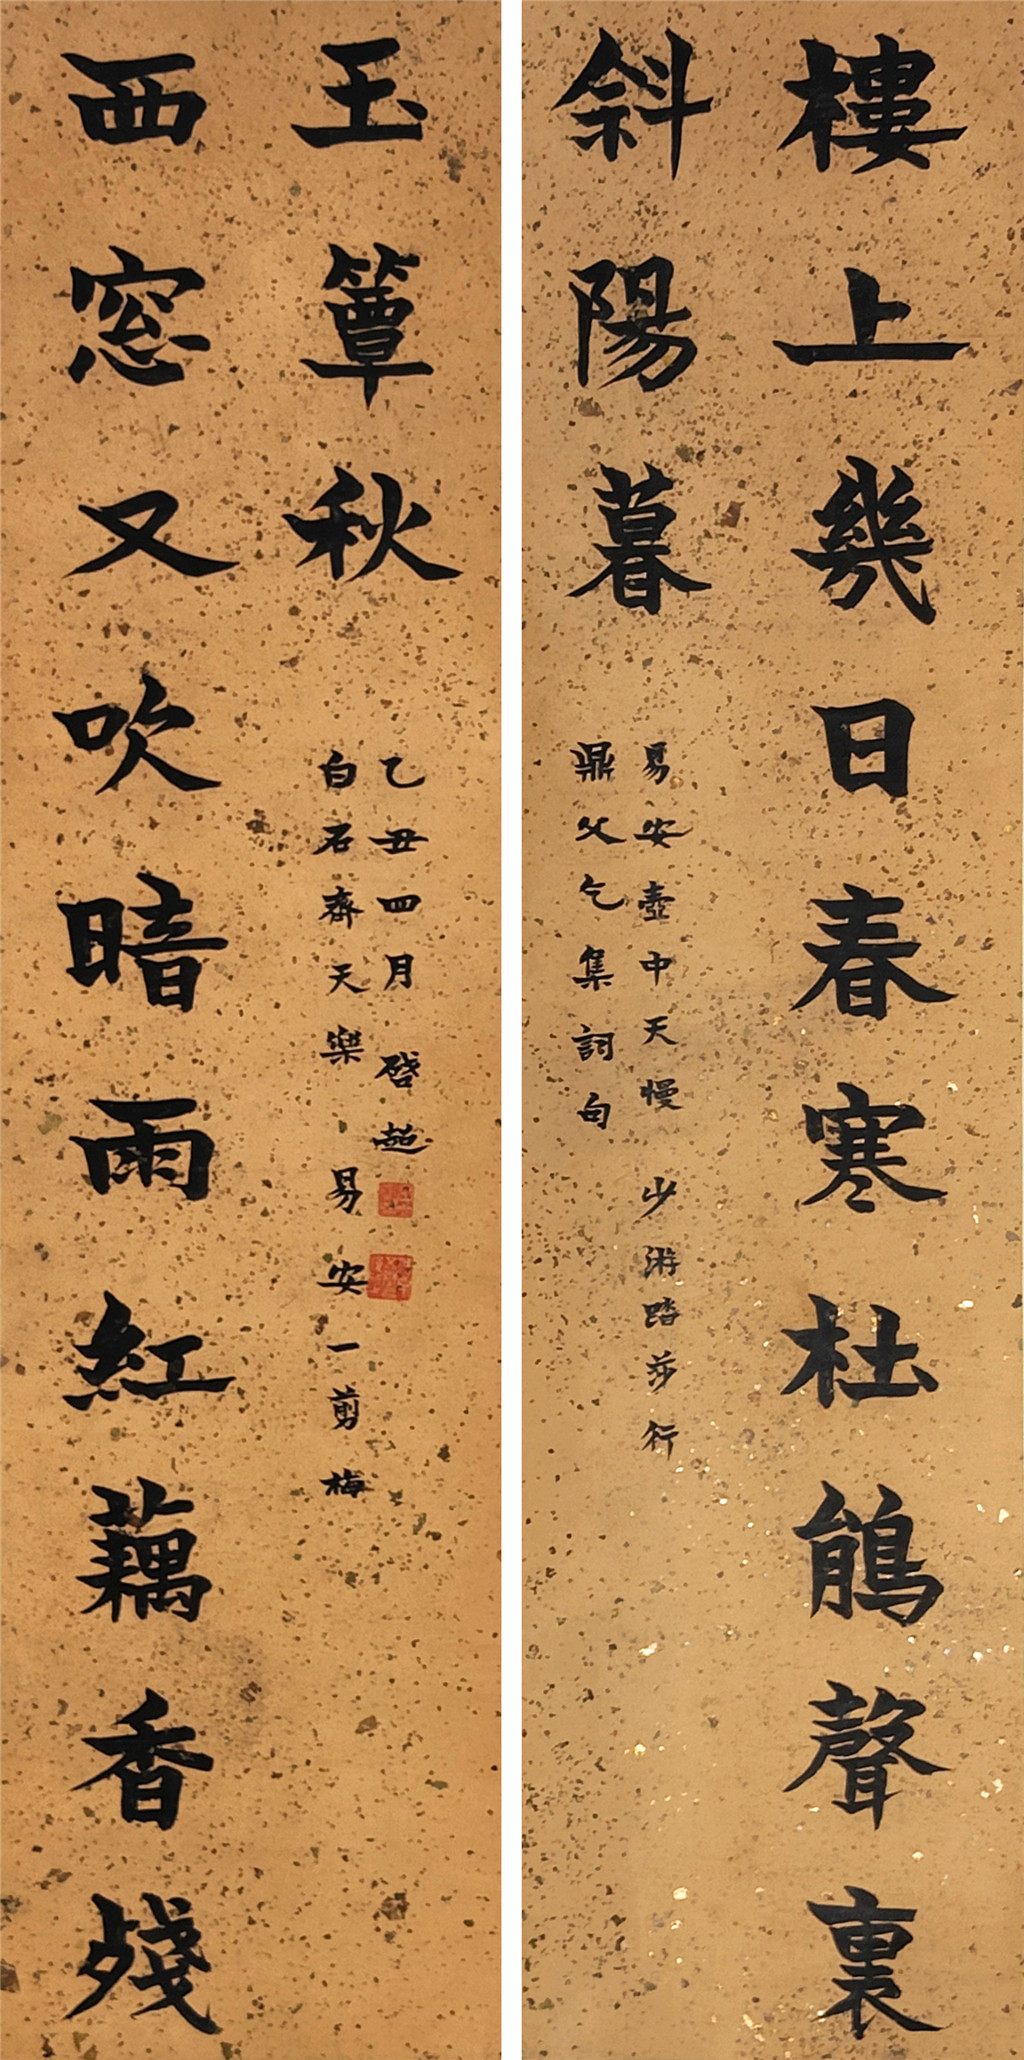 樓上幾日春寒杜鵑聲裏
斜陽暮
易安壺中天慢 少游踏莎行
鼎父乞集詞句
西窓又吹暗雨紅藕香殘
玉簟秋
白石齊天樂 易安一剪梅
乙丑四月 啓超